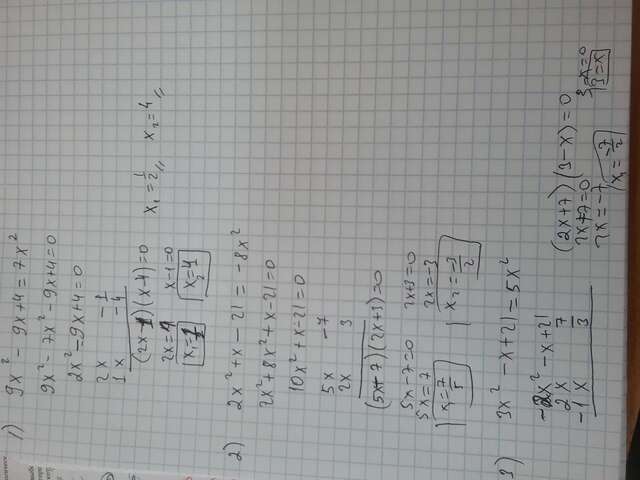 1) 9x² - 9x+4 = 7x²
9x² - 7x² - 9x+4=0
2x² - 9x+4=0
2x -1
1x -4
(2x-1)(x-4)=0
x₁ = 1/2 ,, x₂ = 4 ,,
2x=1 x-1=0
x₁=1/2 x₂=4
2) 2x² + x - 21 = -8x²
2x²+8x²+x-21=0
10x²+x-21=0
5x -7
2x 3
(5x-7)(2x+3)=0
5x-7=0 2x+3=0
5x=7 2x=-3
x₁=7/5 x₂=-3/2
3) 3x² - x+21 = 5x²
-2x² - x+21
2x 7
-1x 3
(2x+7)(3-x)=0
2x+7=0 3-x=0
2x=-7 3=x
x₁=-7/2